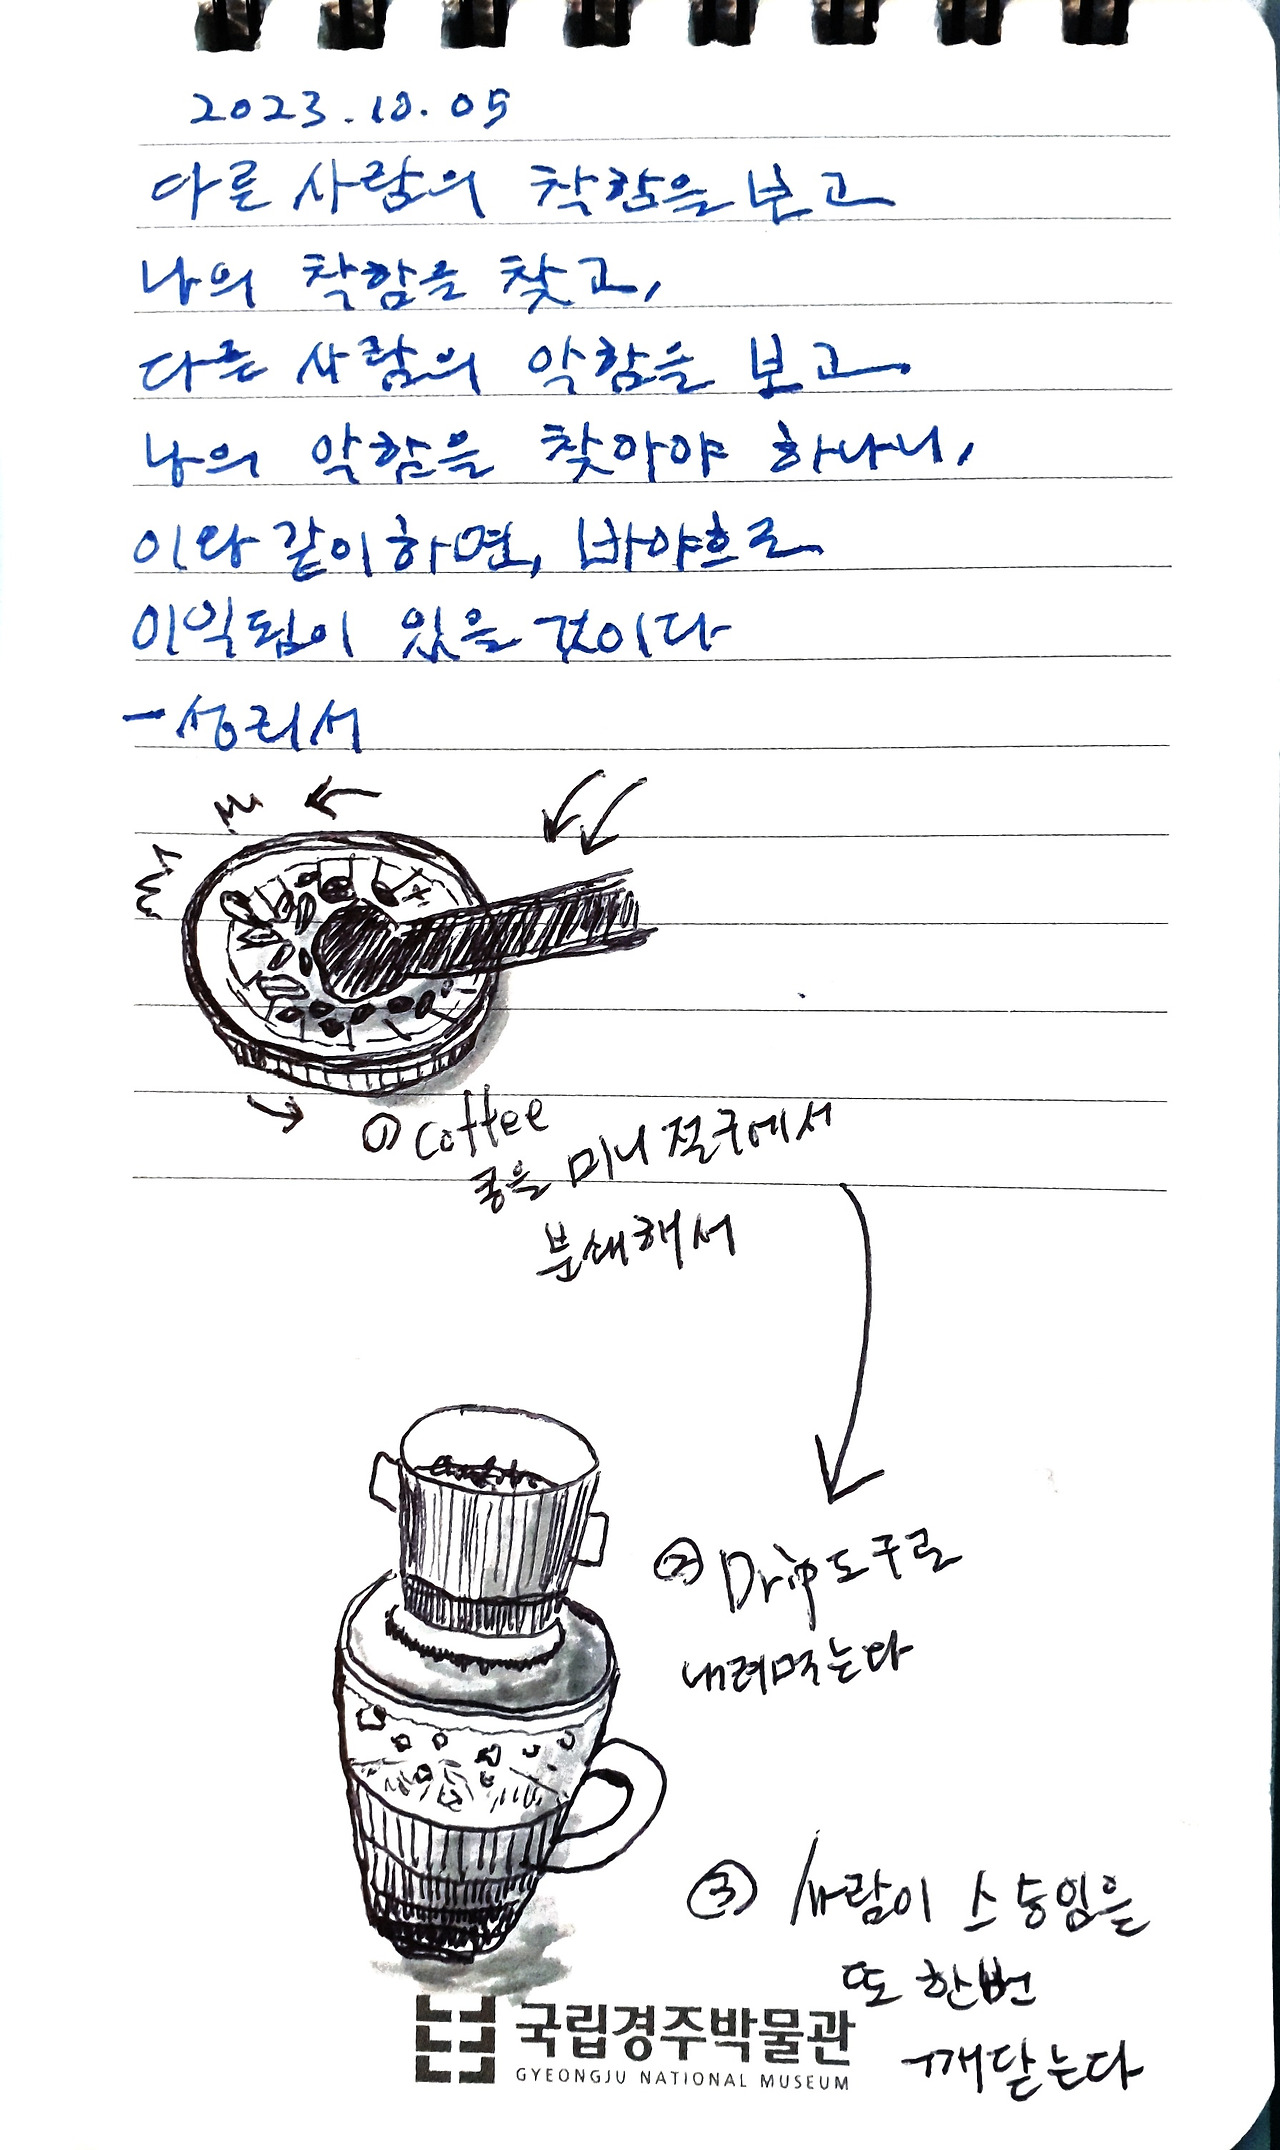 2023.10.05
다른 사람의 착함을 보고
나의 착함을 찾고,
다른 사람의 악함을 보고
나의 악함을 찾아야 하나니,
이와 같이하면, 바야흐로
이익됨이 있을 것이다
- 성리서
① Coffee
콩을 미니 절구에서
분쇄해서
② Drip도구로
내려먹는다
③ 사람이 스승임을
또 한번
깨닫는다
국립경주박물관
GYEONGJU NATIONAL MUSEUM